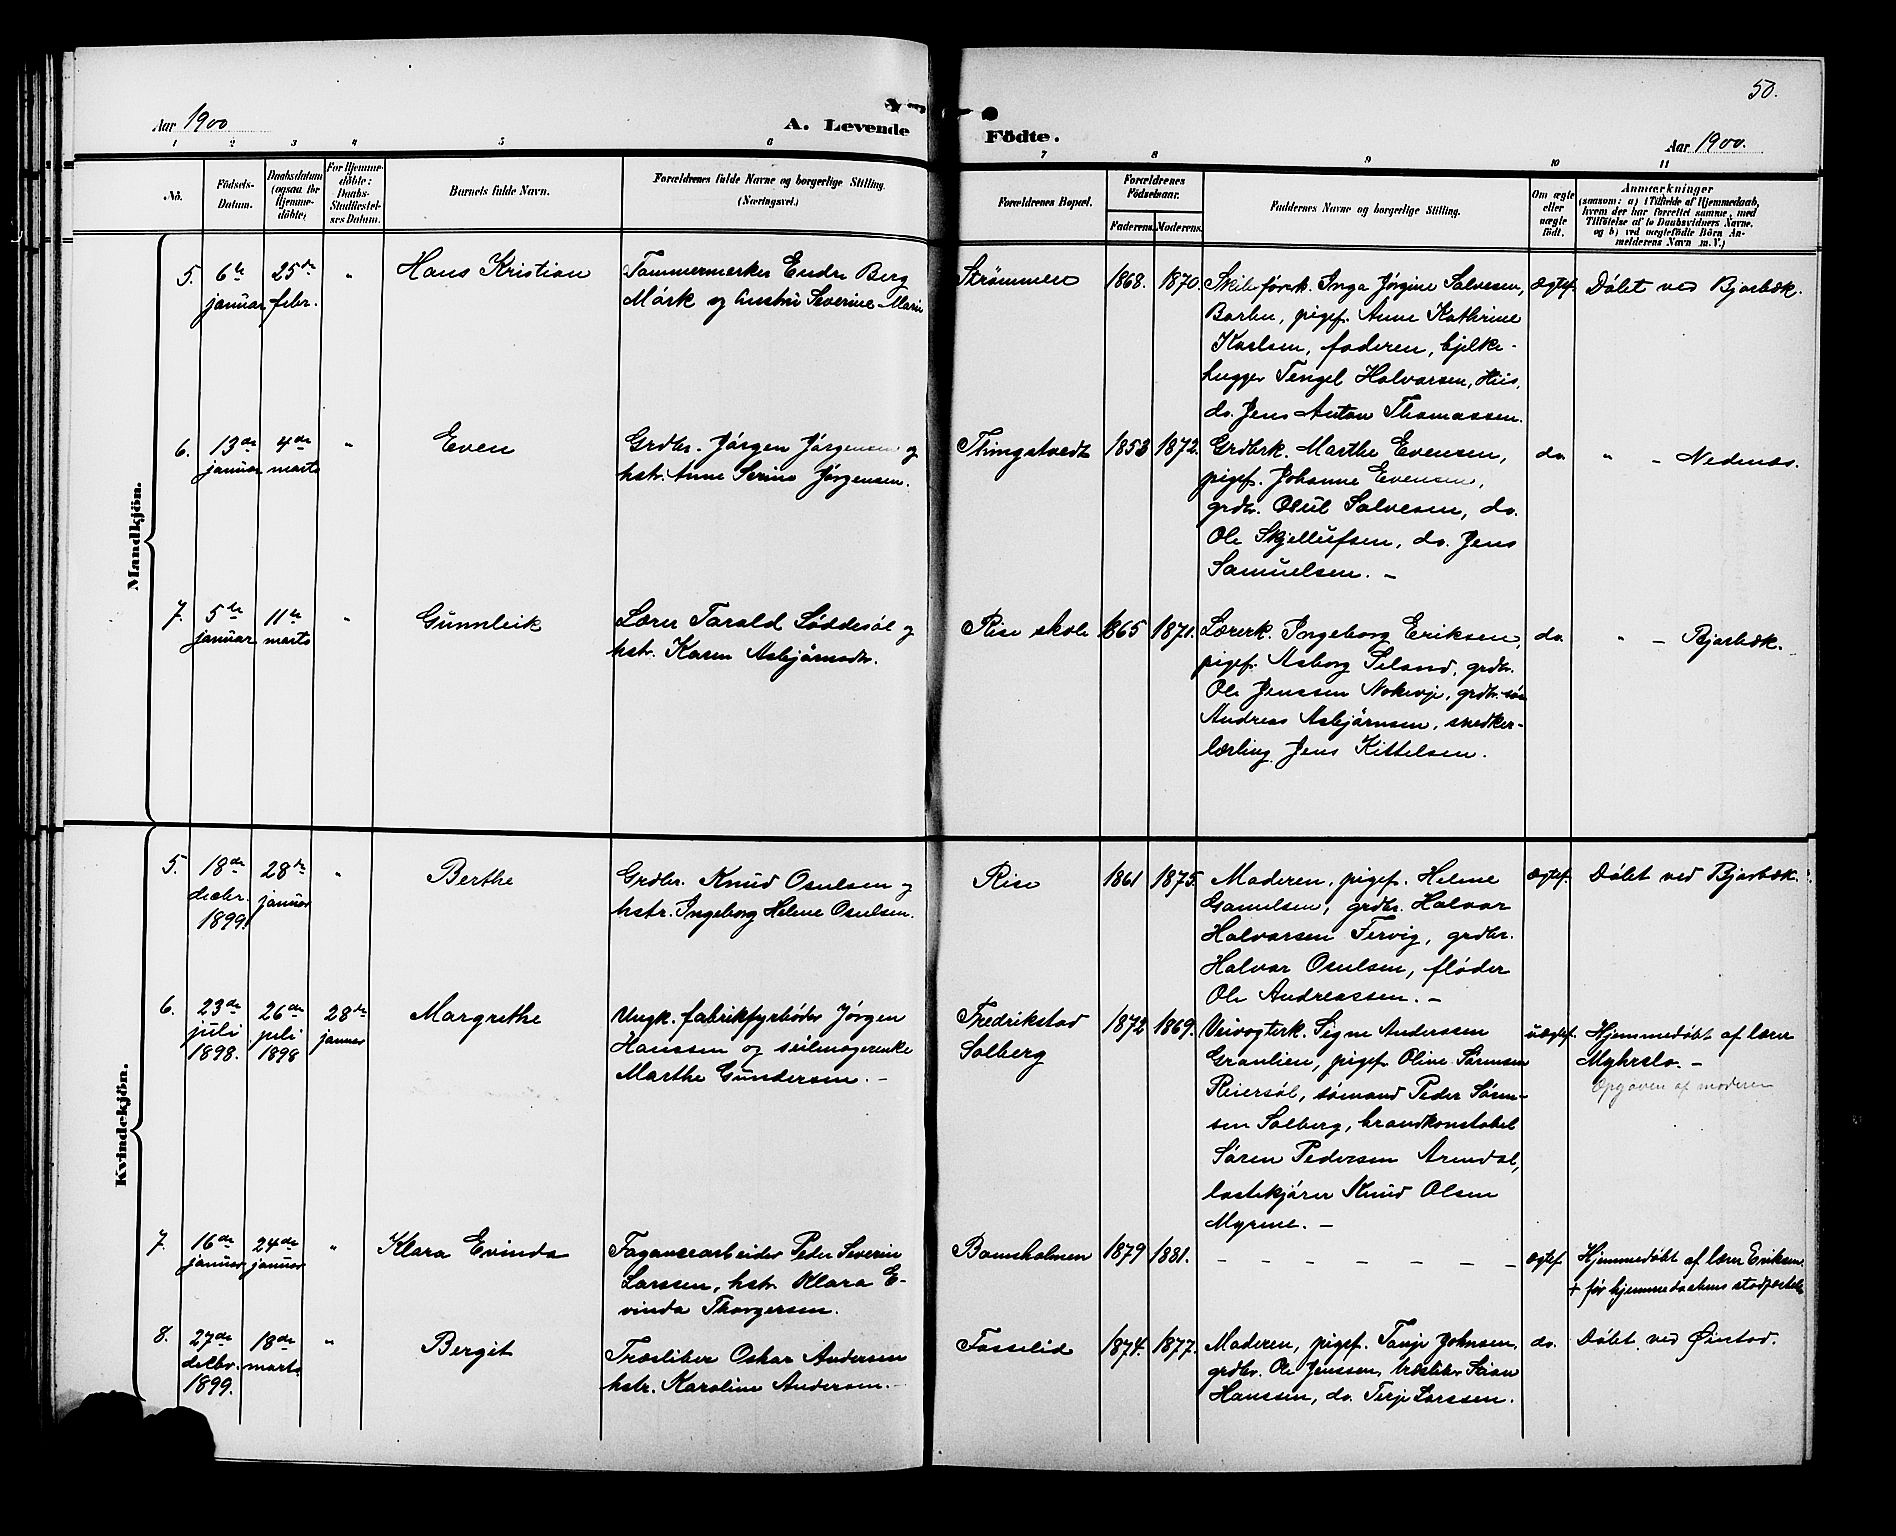 50.
Aar 1900
A. Levende
Födte.
Aar 1900.
1 2 3 4 5 6 7 8 9 10 11
No.
Födsels-
Datum.
Daabsdatum
(ogsaa for
Hjemme-
döbte;
For Hjemme-
döbte:
Daabs-
Stadfæstel-
ses Datum.
Barnets fulde Navn.
Forældrenes fulde Navne og borgerlige Stilling.
(Næringsvei.)
Forældrenes Bopæl.
Forældrenes
Födselsaar.
Faderens. Moderens.
Faddernes Navne og borgerlige Stilling.
Om ægte
eller
uægte
födt.
Anmærkninger
(saasom: a) i Tilfælde af Hjemmedaab,
hvem der har forrettet samme, med
Tilföielse af to Daabsvidners Navne,
og b) ved uægtefödte Börn An-
melderens Navn m. V.)
Mandkjön.
5.
6te
januar
25de
febr.
"
Hans Kristian
Tømmermerker Endre Berg
Mørk og hustru Severine Marie
Strømmen
1868.
1870.
Skibsførerk. Inga Jørgine Salvesen,
Barbu, pigef. Anne Kathrine
Karlsen, faderen, bjelke-
hugger Tengel Halvorsen, Hiis,
do. Jens Anton Thomassen.
Ægtef.
Døbt ved Bjorbæk.
6.
13de
januar
4de
marts
"
Even
Grdbr. Jørgen Jørgensen og
hstr. Anne Serine Jørgensen.
Thingstvedt
1853
1872.
Grdbrk. Marthe Evensen,
pigef. Johanne Evensen,
grdbr. Osul Salvesen, do.
Ole Skjellufsen, do. Jens
Samuelsen. –
do.
" – Nedenæs.
7.
5te
januar
11te
marts
"
Gunnleik
Lærer Tarald Løddesøl og
hstr. Karen Asbjørnsdtr.
Rise skole
1865
1871.
Lærerk. Ingeborg Eriksen,
pigef. Asborg Seland, grdbr.
Ole Jenssen Nokevje, grdbr. søn
Andreas Asbjørnsen, snedker-
lærling Jens Kittelsen.
do.
" – Bjorbæk.
Kvindekjön.
5.
18de
decbr.
1899.
28de
januar
"
Berthe
Grdbr. Knud Osulsen og
hstr. Ingeborg Helene Osulsen.
Rise
1861
1875.
Moderen, pigef. Helene
Gamelsen, grdbr. Halvor
Halvorsen Tervig, grdbr.
Halvor Osulsen, fløder
Ole Andreassen. –
Ægtef.
Døbt ved Bjorbæk.
6.
23de
juli
1898.
26de
juli
1898
28de
januar
Margrethe
Ungk. fabrikfyrbøder Jørgen
Hanssen og seilmagerenke
Marthe Gundersen. –
Fredrikstad
Solberg
1872
1869.
Veivogterk. Signe Anderssen
Granlien, pigef. Oline Sørensen
Reiersøl, sømand Peder Søren-
sen Solberg, brandkonstabel
Søren Pedersen Arendal,
lastekjører Knud Olsen
Myrene. –
uægtef.
Hjemmedøbt af lærer
Myhrslo. –
Opgaven af moderen
7.
16de
januar
24de
januar
"
Klara Evinda
Fagansearbeider Peder Severin
Larssen, hstr. Klara E-
vinda Thorgersen.
Bomsholmen
1879
1881.
– – – – – – –
ægtef.
Hjemmedøbt af lærer Eriksen.
+ før hjemmedaabens stadfæstelse
8.
27de
decbr.
1899.
18de
marts
"
Bergit
Træsliber Oskar Andersen
hstr. Karoline Andersen.
Fosselid
1874.
1877.
Moderen, pigef. Tanje Johnsen,
grdbr. Ole Jenssen, træsliber
Hanssen, do. Terje Larssen.
do.
Døbt ved Øistad.